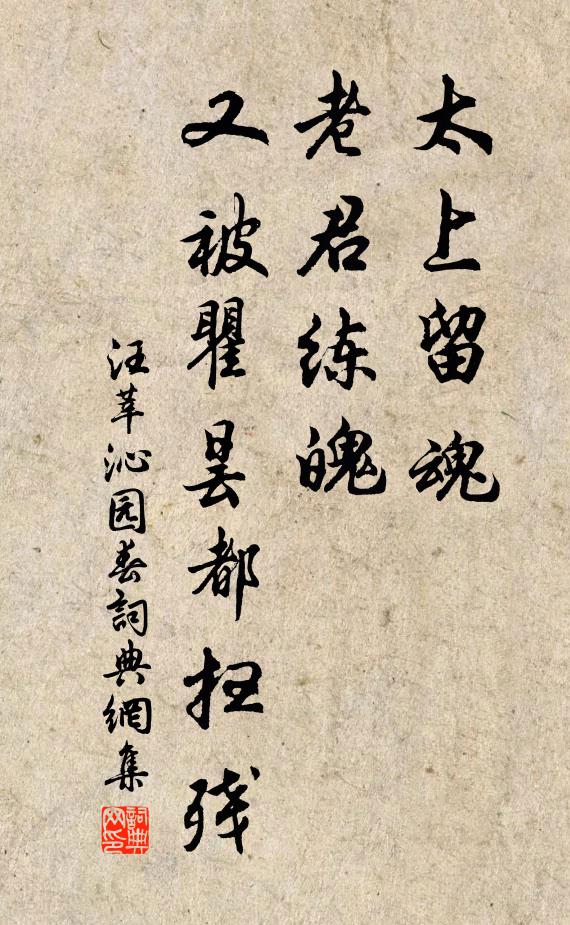 太上留魂
老君练魄
又被瞿昙都扫残
汪莘沁园春詞典網集
詞典
网印